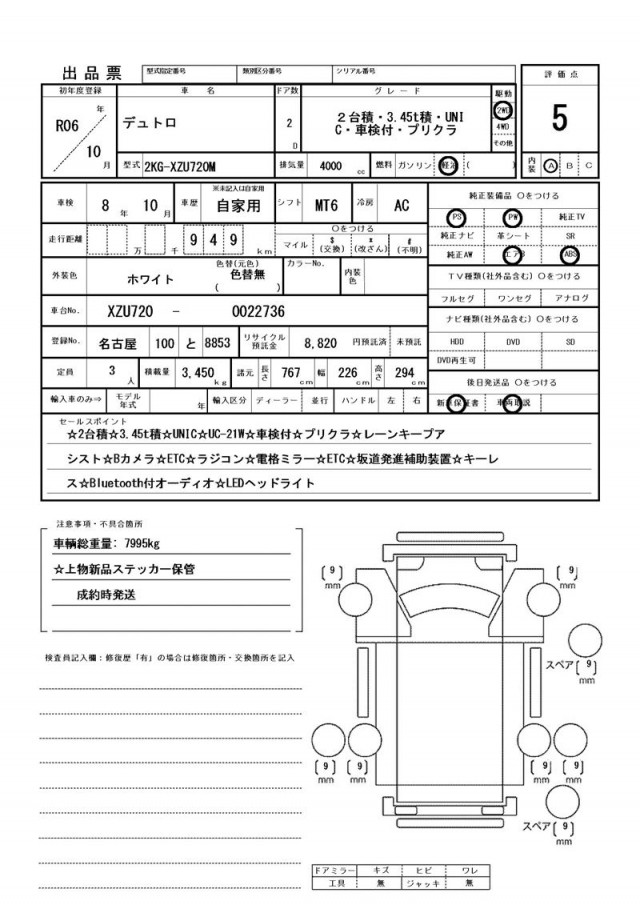 出品票 型式指定番号 類別区分番号 シリアル番号 評価点
初年度登録 車名 ドア数 グレード 駆動
R06 年 10 月
デュトロ
2 D
２台積・3.45t積・UNI
C・車検付・プリクラ
2WD
4WD
その他
5
型式 2KG-XZU720M 排気量 4000 cc 燃料 ガソリン 軽油 ( )
内装 A B C
車検 8 年 10 月 車歴 ※未記入は自家用 自家用 シフト MT6 冷房 AC
走行距離 万 千 9 4 9 km
○をつける
マイル $ (交換) * (改ざん) # (不明)
外装色 ホワイト 色替(元色) 色替無 ( ) カラーNo. 内装色
車台No. XZU720 - 0022736
登録No. 名古屋 100 と 8853 リサイクル預託金 8,820 円預託済 未預託
定員 3 人 積載量 3,450 kg 諸元 長さ 767 cm 幅 226 cm 高さ 294 cm
輸入車のみ⇒ モデル年式 年 輸入区分 ディーラー 並行 ハンドル 左 右
純正装備品 ○をつける
PS PW 純正TV
純正ナビ 革シート SR
純正AW エアB ABS
TV種類(社外品含む) ○をつける
フルセグ ワンセグ アナログ
ナビ種類(社外品含む) ○をつける
HDD DVD SD
DVD再生可
後日発送品 ○をつける
新車保証書 車両取説
セールスポイント
☆2台積☆3.45t積☆UNIC☆UC-21W☆車検付☆プリクラ☆レーンキープア
シスト☆Bカメラ☆ETC☆ラジコン☆電格ミラー☆ETC☆坂道発進補助装置☆キーレ
ス☆Bluetooth付オーディオ☆LEDヘッドライト
注意事項・不具合箇所
車輌総重量: 7995kg
☆上物新品ステッカー保管
成約時発送
検査員記入欄：修復歴「有」の場合は修復箇所・交換箇所を記入
(9) mm
(9) mm
スペア(9) mm
(9) mm
(9) mm
(9) mm
(9) mm
スペア(9) mm
ドアミラー キズ ヒビ ワレ
工具 無 ジャッキ 無